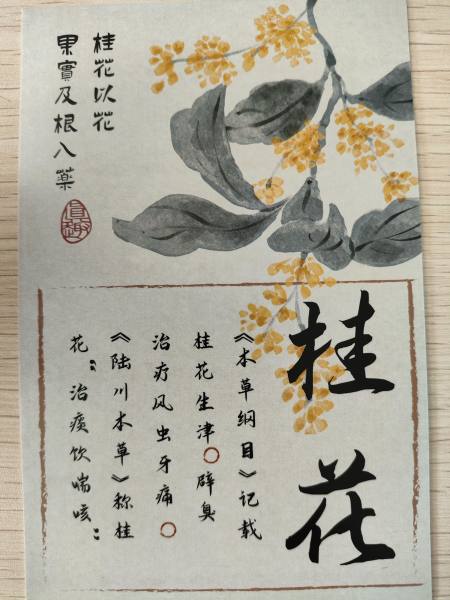 桂花以花
果實及根入藥
桂花
《本草纲目》记载
桂花生津○辟臭
治疗风虫牙痛○
《陆川本草》称桂
花“治痰饮喘咳”